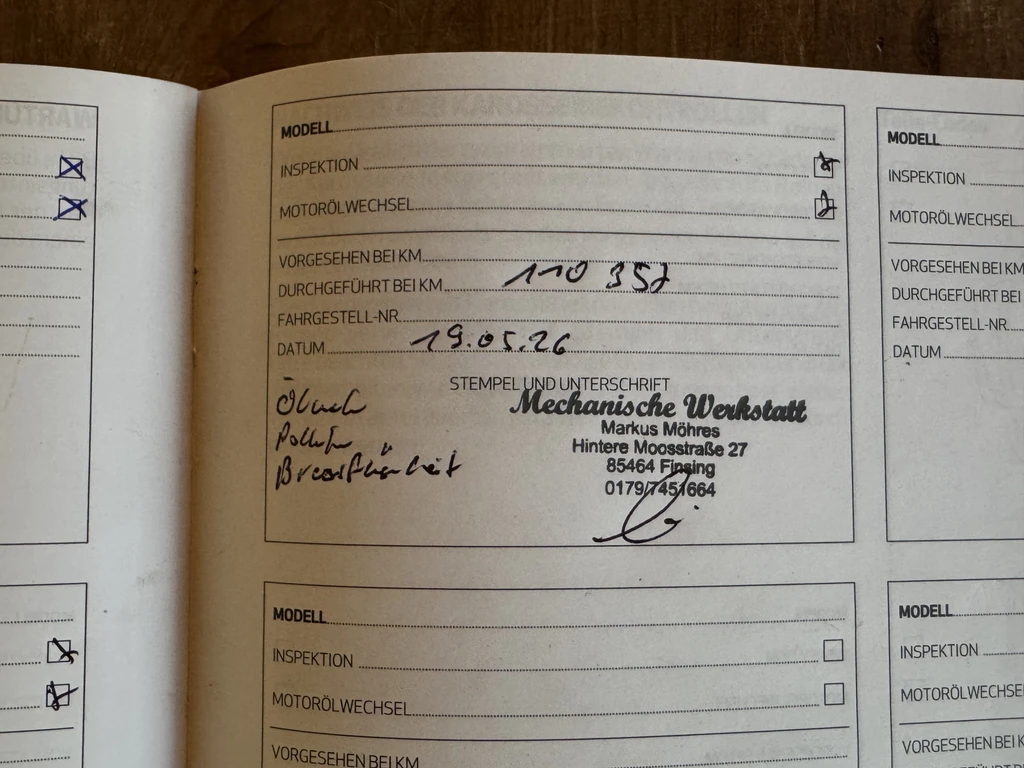 MODELL
INSPEKTION
MOTORÖLWECHSEL
VORGESEHEN BEI KM
DURCHGEFÜHRT BEI KM 110 357
FAHRGESTELL-NR.
DATUM 19.05.26
STEMPEL UND UNTERSCHRIFT
Mechanische Werkstatt
Markus Möhres
Hintere Moosstraße 27
85464 Finsing
0179/7451664
MODELL
INSPEKTION
MOTORÖLWECHSEL
VORGESEHEN BEI KM
MODELL
INSPEKTION
MOTORÖLWECHSEL
VORGESEHEN BEI KM
DURCHGEFÜHRT BEI
FAHRGESTELL-NR.
DATUM
MODELL
INSPEKTION
MOTORÖLWECHSEL
VORGESEHEN BEI K